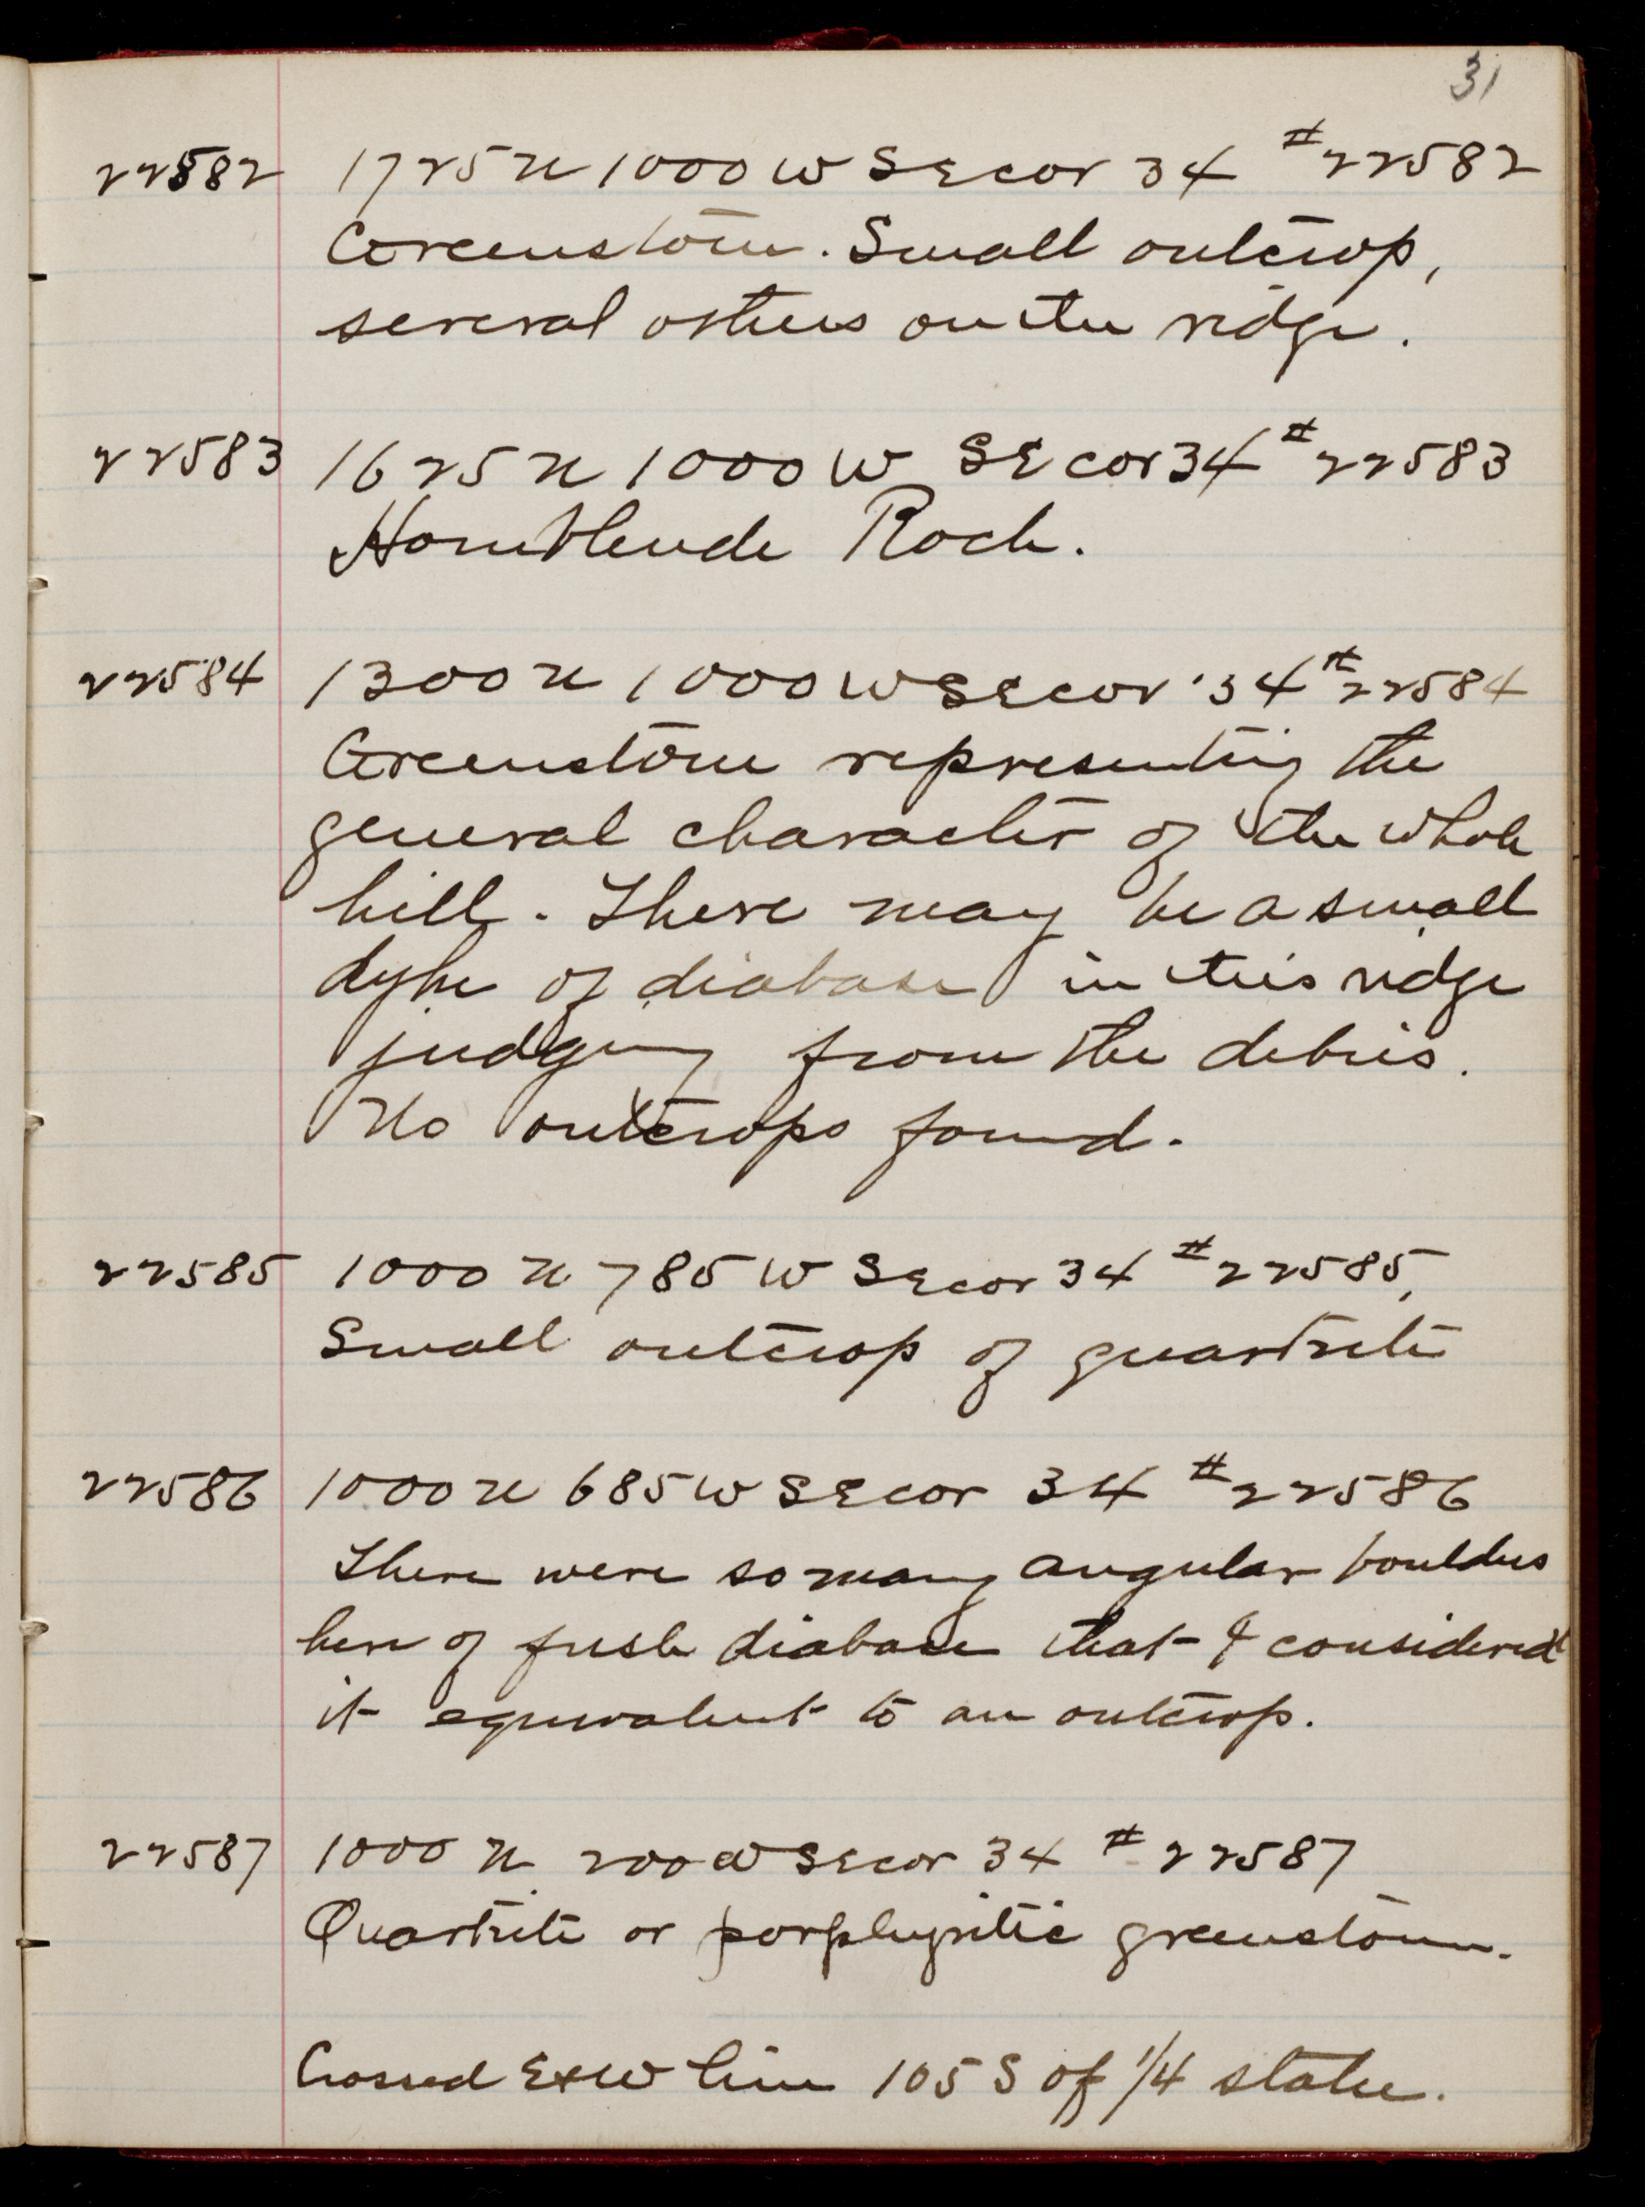 31
22582 1725 N 1000 W SE cor 34 #22582
Greenstone. Small outcrop,
several others on the ridge.
22583 1625 N 1000 W SE cor 34 #22583
Hornblende Rock.
22584 1300 N 1000 W SE cor 34 #22584
Greenstone representing the
general character of the whole
hill. There may be a small
dyke of diabase in this ridge
judging from the debris.
No outcrops found.
22585 1000 N 785 W SE cor 34 #22585,
Small outcrop of quartzite
22586 1000 N 685 W SE cor 34 #22586
There were so many angular boulders
here of fresh diabase that I considered
it equivalent to an outcrop.
22587 1000 N 200 W SE cor 34 #22587
Quartzite or porphyritic greenstone.
Crossed E & W line 105 S of 1/4 stake.